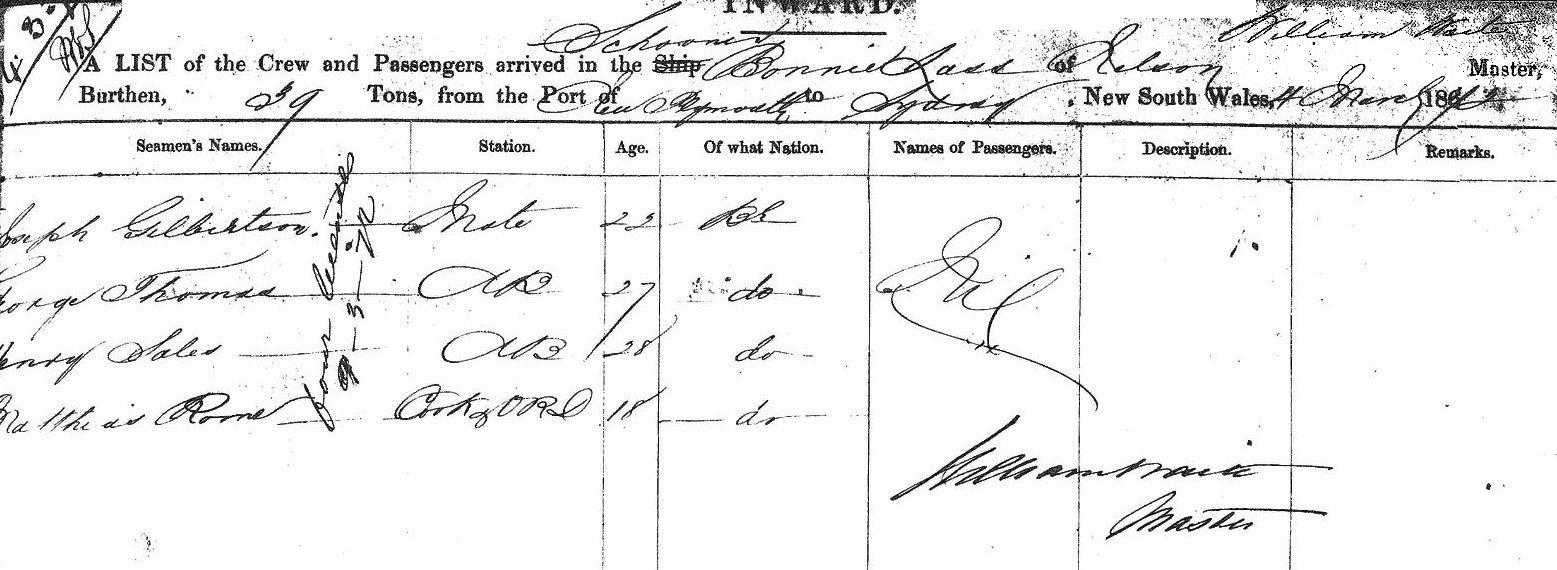 INWARD.
Schooner William Waite
A LIST of the Crew and Passengers arrived in the Ship Bonnie Lass of Nelson Master,
Burthen, 39 Tons, from the Port of New Plymouth to Sydney, New South Wales, 4 March 187
Seamen's Names. Station. Age. Of what Nation. Names of Passengers. Description. Remarks.
Joseph Gilbertson. Mate 22 Br Nil
George Thomas AB 27 do
Henry Sales AB 28 do
Matthias Rome Cook & ORD 18 do
four
9-3-72
William Waite
Master